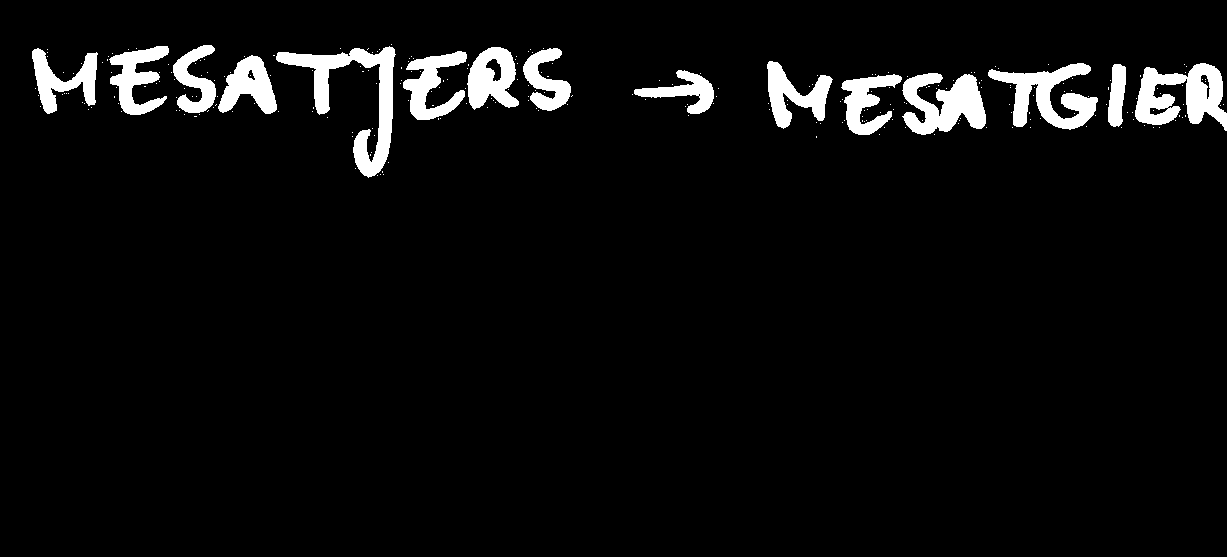 MESATJERS → MESATGIER